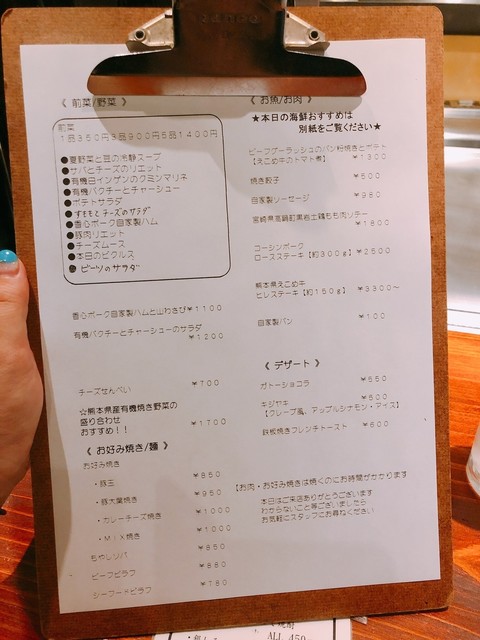 《 前菜/野菜 》
前菜
1品350円3品900円5品1400円
●夏野菜と豆の冷静スープ
●サバとチーズのリエット
●有機白インゲンのクミンマリネ
●有機パクチーとチャーシュー
●ポテトサラダ
●すももとチーズのサラダ
●香心ポーク自家製ハム
●豚肉リエット
●チーズムース
●本日のピクルス
●ビーツのサラダ
香心ポーク自家製ハムと山わさび¥1100
有機パクチーとチャーシューのサラダ
¥1200
チーズせんべい ¥700
☆熊本県産有機焼き野菜の
盛り合わせ ¥1700
おすすめ!!
《 お好み焼き/麺 》
お好み焼き
・豚玉 ¥850
・豚大葉焼き ¥950
・カレーチーズ焼き ¥1000
・MIX焼き ¥1000
ちゃしソバ ¥850
ビーフピラフ ¥880
シーフードピラフ ¥780
《 お魚/お肉 》
★本日の海鮮おすすめは
別紙をご覧ください★
ビーフグーラッシュのパン粉焼きとポテト
【えこめ牛のトマト煮】 ¥1300
焼き餃子 ¥500
自家製ソーセージ ¥980
宮崎県高鍋町黒岩土鶏もも肉ソテー
¥1800
コーシンポーク
ロースステーキ【約300g】¥2500
熊本県えこめ牛
ヒレステーキ【約150g】 ¥3300～
自家製パン ¥100
《 デザート 》
ガトーショコラ ¥550
キジヤキ ¥600
【クレープ風、アップルシナモン・アイス】
鉄板焼きフレンチトースト ¥600
【お肉・お好み焼きは焼くのにお時間がかかります
本日はご来店ありがとうございます
わからないこと等ございましたら
お気軽にスタッフにお尋ねください
ALL 450